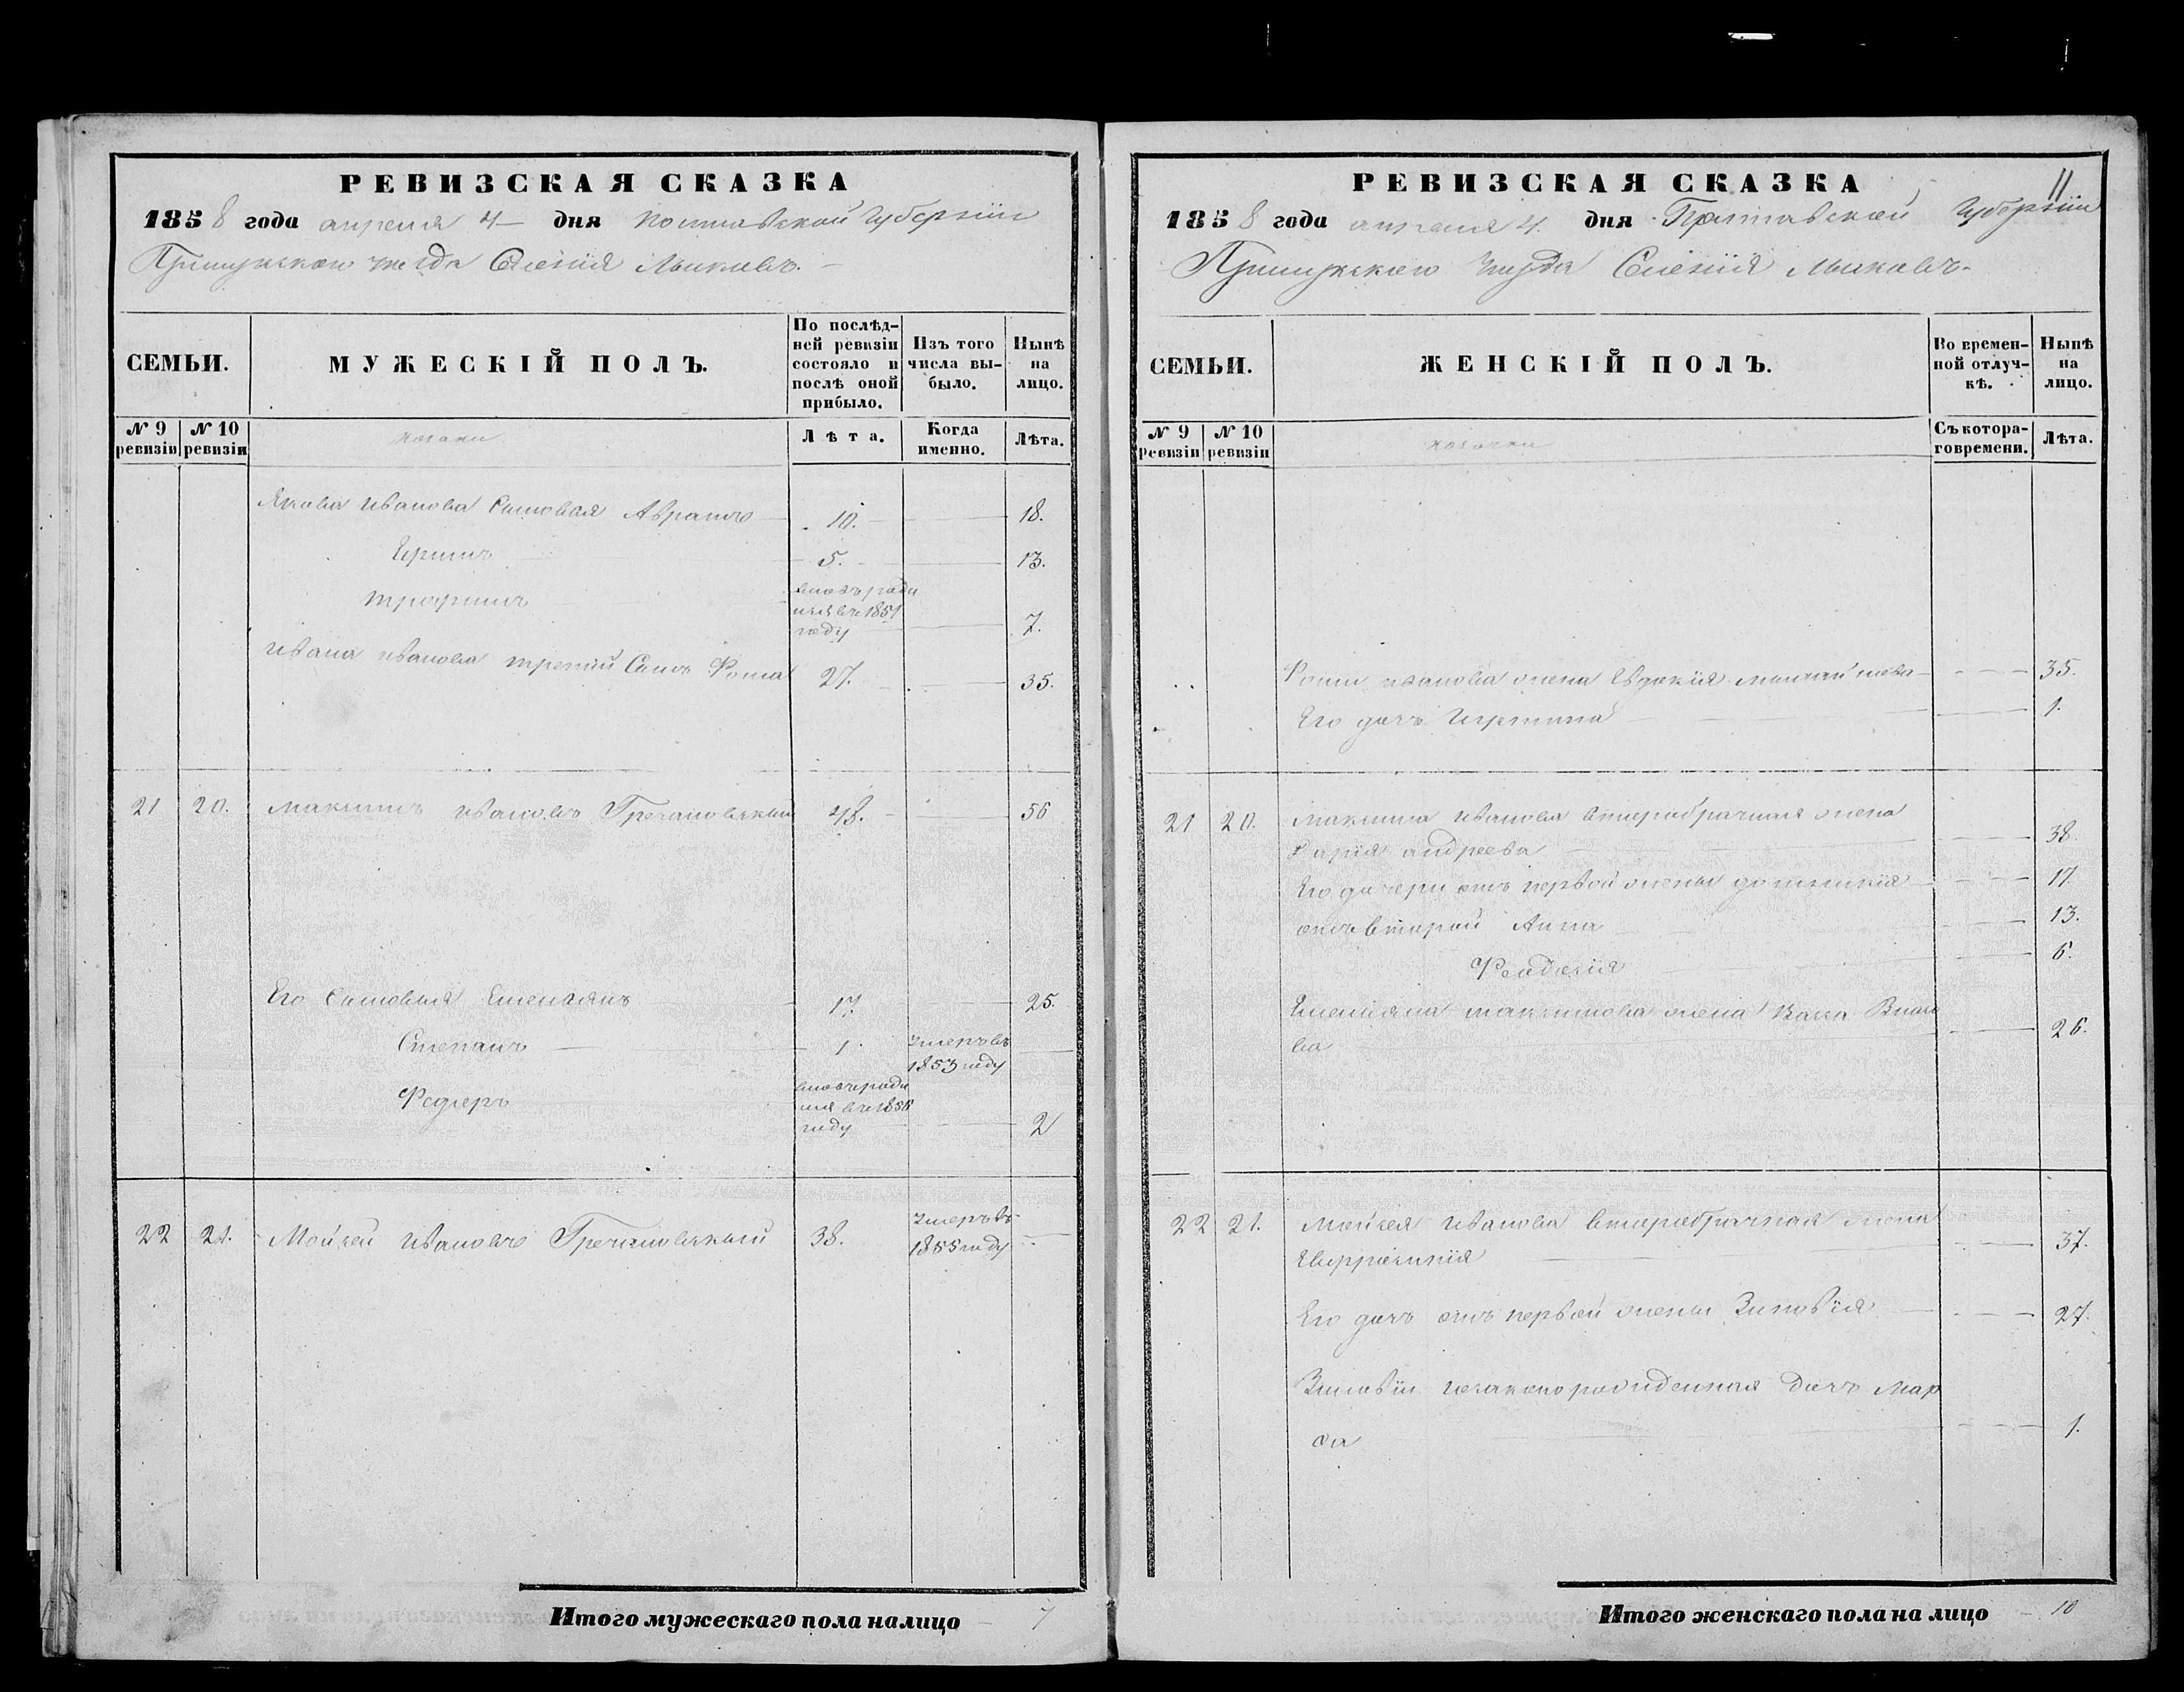 РЕВИЗСКАЯ СКАЗКА
1858 года апреля 4 дня Полтавской Губерніи
Прилукского уезда Селенія
СЕМЬИ.
МУЖЕСКІЙ ПОЛЪ.
По послѣд-
ней ревизіи
состояло и
послѣ оной
прибыло.
Изъ того
числа вы-
было.
Нынѣ
на
лицо.
№ 9
ревизіи
№ 10
ревизіи
козаки
Лѣта.
Когда
именно.
Лѣта.
Якова Иванова Сыновья Авраамъ 10. 18.
5. 13.
Трофимъ
вновь роди
лся въ 1851
году 7.
Ивана Иванова третий Сынъ Фома 27. 35.
21 20. Максимъ Ивановъ Гречановский 48. 56
Его Сыновья Емельянъ 17. 25.
Степанъ 1.
умеръ въ
1853 году
Федоръ
вновь роди
лся въ 1856
году 2
22 21. Мойсей Ивановъ Гречановский 38.
умеръ въ
1855 году
Итого мужескаго пола на лицо 7
11
РЕВИЗСКАЯ СКАЗКА
1858 года апреля 4. дня Полтавской Губерніи
Прилукского уезда Селенія
СЕМЬИ.
ЖЕНСКІЙ ПОЛЪ.
Во времен-
ной отлуч-
кѣ.
Нынѣ
на
лицо.
№ 9
ревизіи
№ 10
ревизіи
козачки
Съ котора-
го времени.
Лѣта.
Фомы Иванова жена Евдокія 35.
Его дочь 1.
21 20. Максима Иванова второбрачная жена
Дарія Андреева 38.
Его дочери отъ первой жены Домникія 17.
отъ второй Анна 13.
Феодосія 6.
Емельяна Максимова жена Васса
ва 26.
22 21. Мойсея Иванова второбрачная жена
Евфросинія 37.
Его дочь отъ первой жены Зиновія 27.
Зиновіи незаконорожденная дочь Мар
фа 1.
Итого женскаго пола на лицо 10